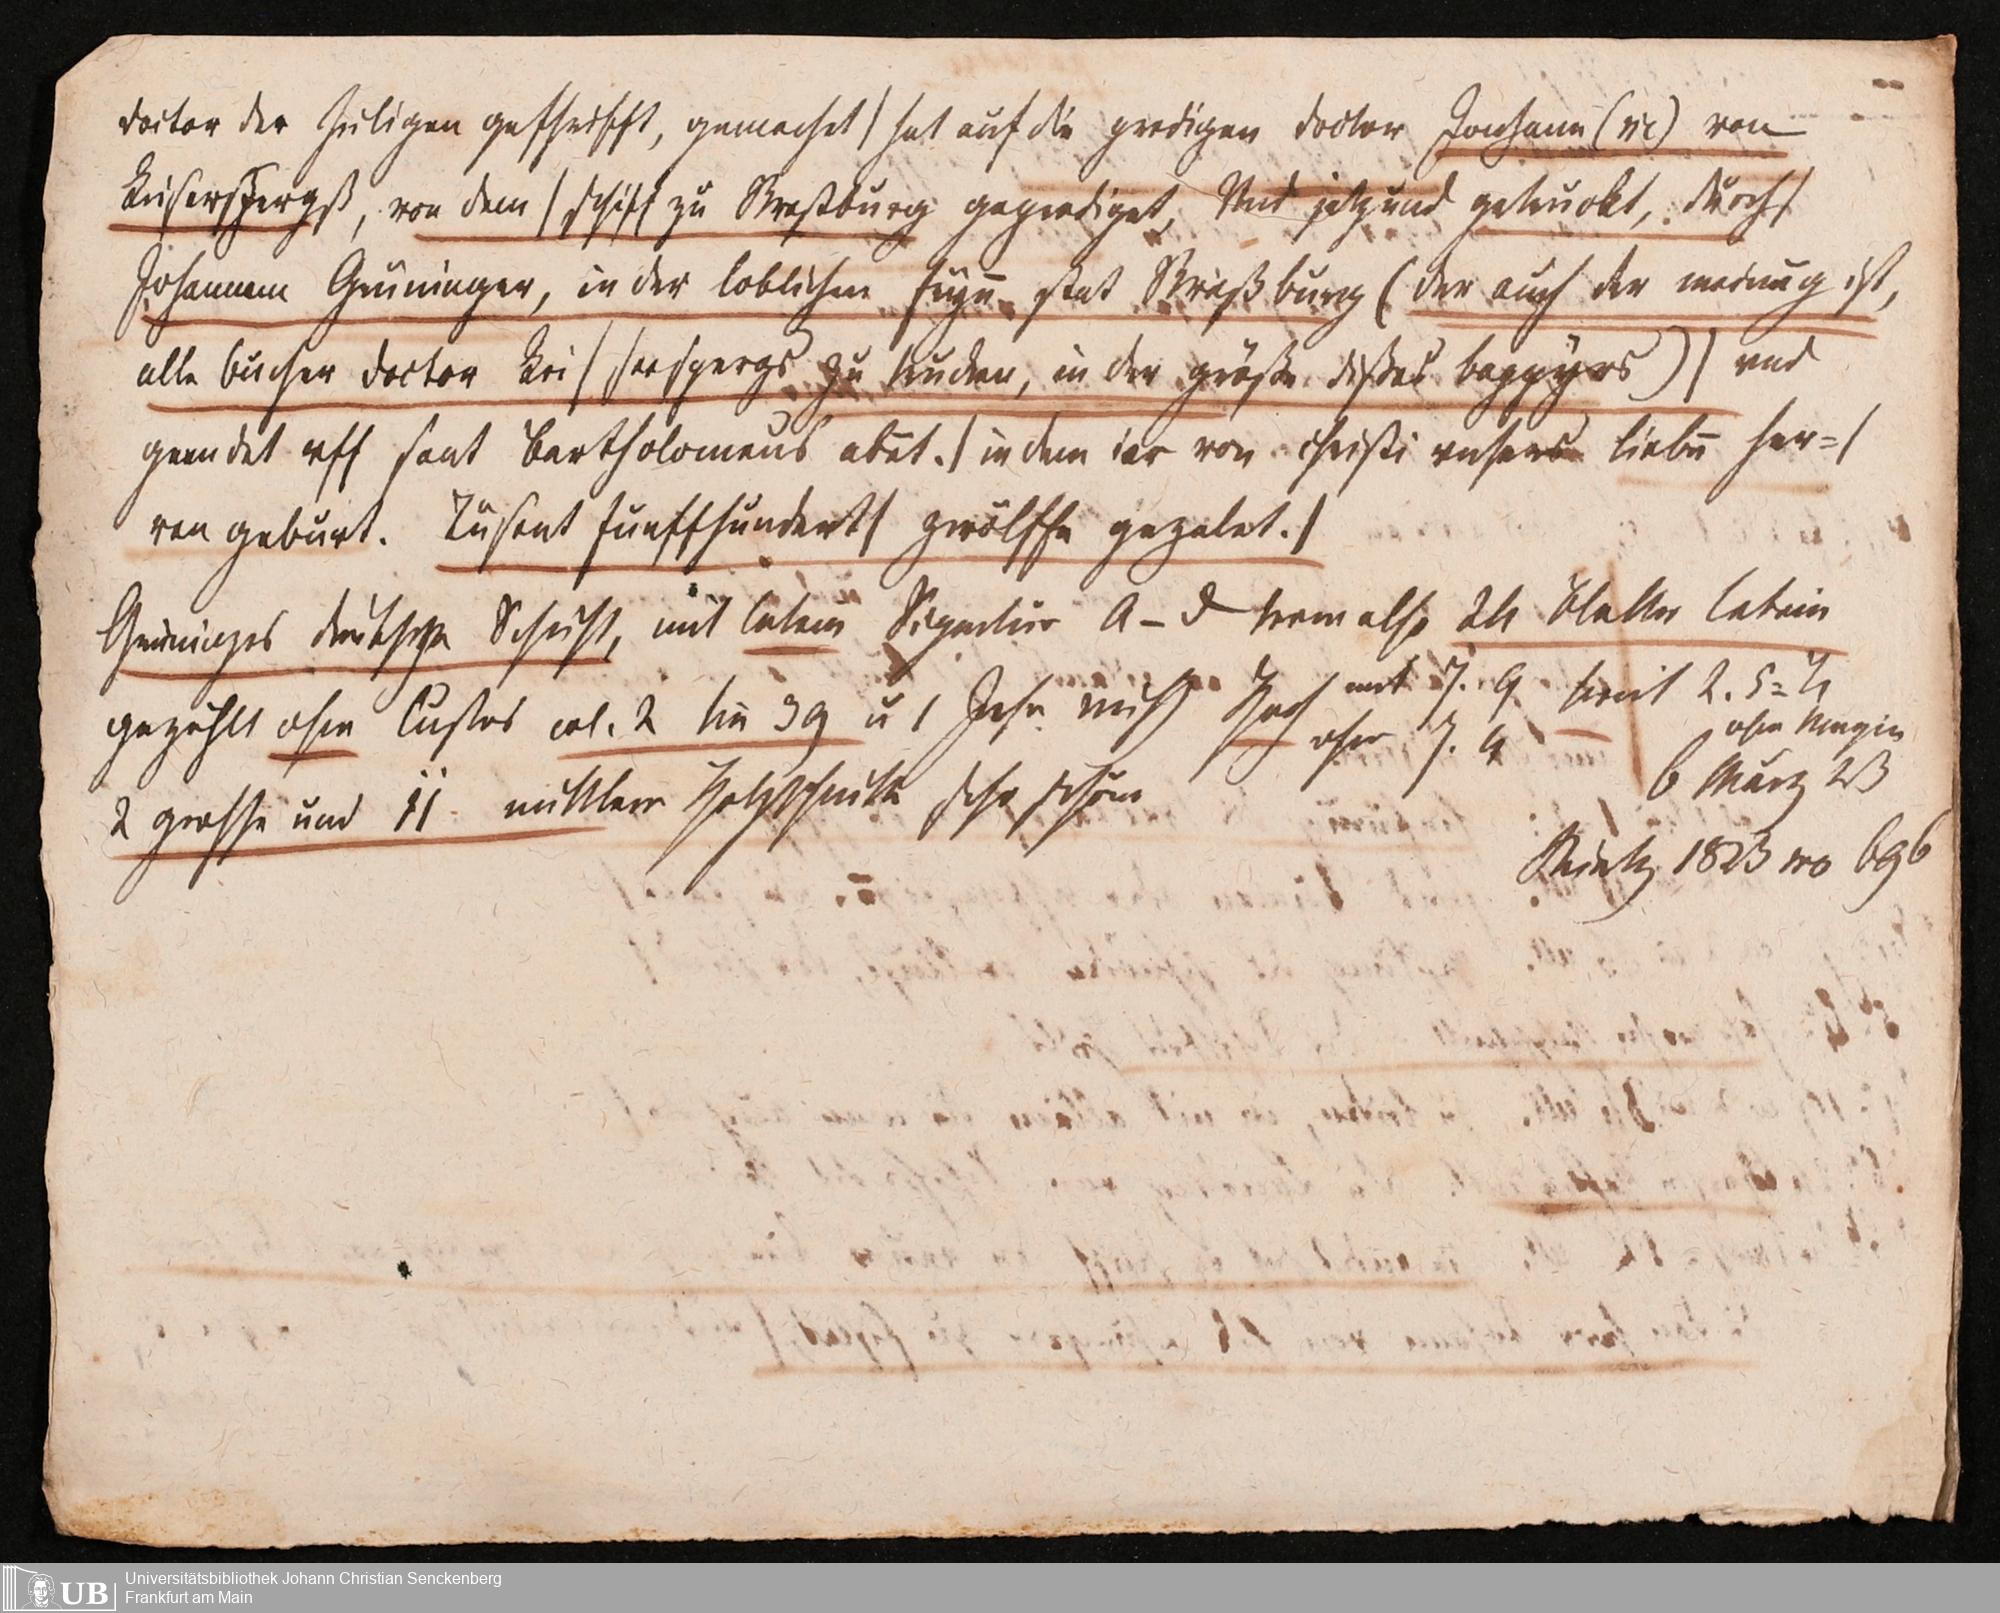 doctor der heiligen geschrifft, gemachet / hat auf die predigen doctor Johann (sic) von
Keiserspergß, von dem / schiff zu Straßburg geprediget, Und jetzund getruckt, durch /
Johannem Gruninger, in der loblichen stat Straßburg (der auch der meinug ist,
alle bucher doctor Kei / serspergs zu trucken, in der größe dißes bappyrs) / vnd
geendet vff sant bartholomeus abet. / in dem iar von christi vnsers liebn her= /
ren geburt. Tusent funffhundert / zwölffe gezalet. /
Gruningers deutsche Schrift, mit Signatur A – d 24 blatter latein
gezählt ohne Custos col. 2 bis 39 u 1 hoch mit 7. 9 breit 2. 5=
ohne 7. 4 ohne Margin
2 grosse und 11 mittlere Holzschnitte sehr schön
6 März 23
1823 no 696
Universitätsbibliothek Johann Christian Senckenberg
UB
Frankfurt am Main